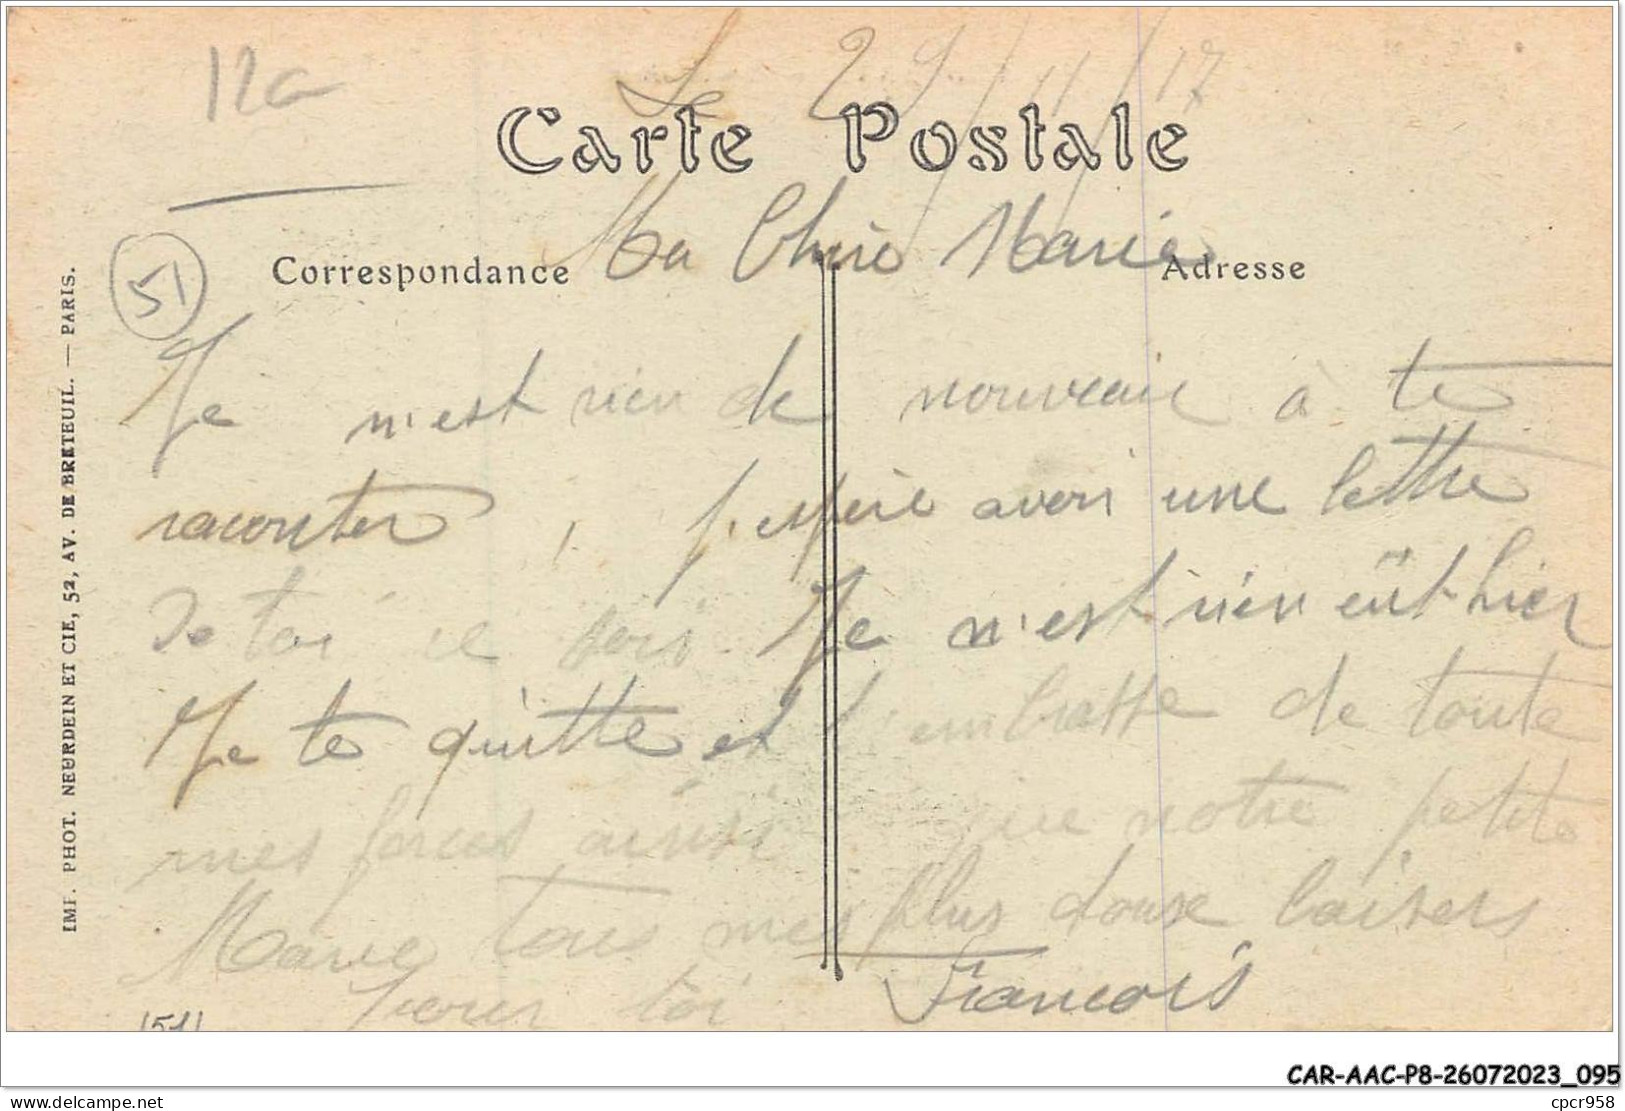 12a
Le 29/11/17
Carte Postale
Ma Chère Marie
Correspondance
Adresse
51
Je n'est rien de nouveau à te
raconter, j'espère avoir une lettre
De toi ce soir Je n'est rien eût hier
Je te quitte et t'embrasse de toute
mes forces ainsi que notre petite
Marie tous mes plus doux baisers
pour toi François
1511
IMP. PHOT. NEURDEIN ET CIE, 52, AV. DE BRETEUIL. — PARIS.
CAR-AAC-P8-26072023_095
www.delcampe.net
cpcr958